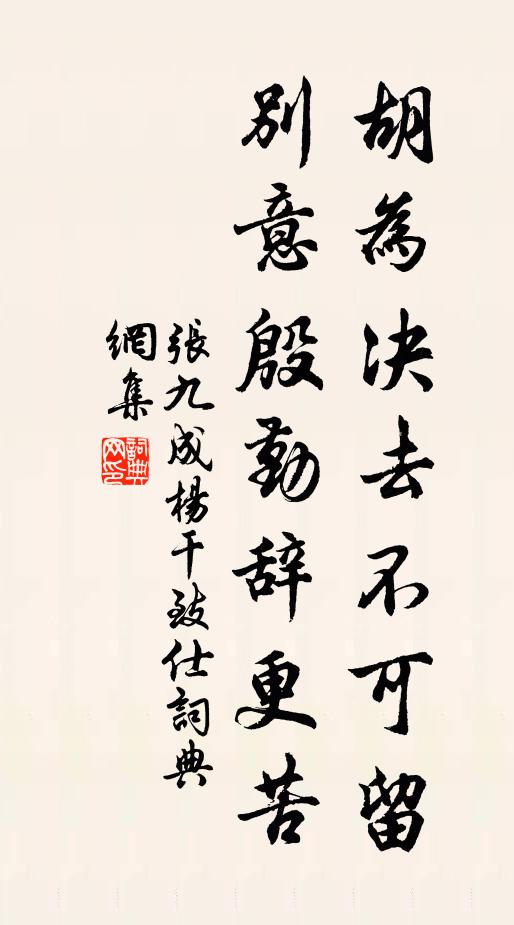 胡為决去不可留
別意殷勤辞更苦
張九成楊干致仕詞典
網集
詞典網印